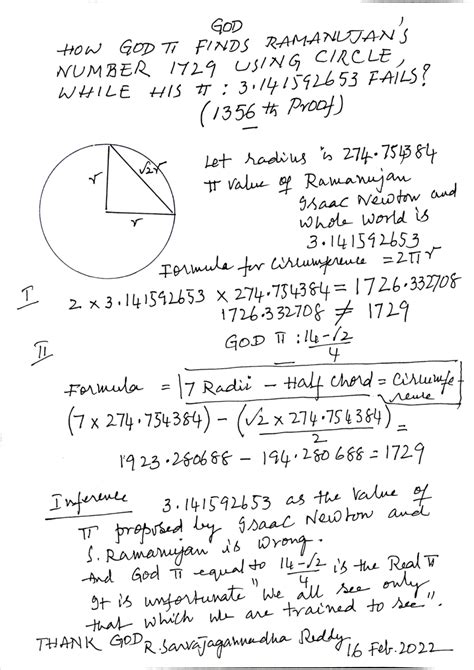 GOD
HOW GOD π FINDS RAMANUJAN'S
NUMBER 1729 USING CIRCLE,
WHILE HIS π : 3.141592653 FAILS?
(1356 th Proof)
r
√2r
r
Let radius is 274.754384
π value of Ramanujan
Isaac Newton and
whole world is
3.141592653
Formula for Circumference = 2πr
I
2 × 3.141592653 × 274.754384 = 1726.332708
1726.332708 ≠ 1729
GOD π : 14-√2
4
II
Formula = 7 Radii - Half Chord = Circumfe-
rence
(7 × 274.754384) - (√2 × 274.754384) =
2
1923.280688 - 194.280688 = 1729
Inference 3.141592653 as the value of
π proposed by Isaac Newton and
S. Ramanujan is wrong.
And God π equal to 14-√2 is the Real π
4
It is unfortunate "we all see only
that which we are trained to see".
THANK GOD R. Sarvajagannadha Reddy
16 Feb. 2022